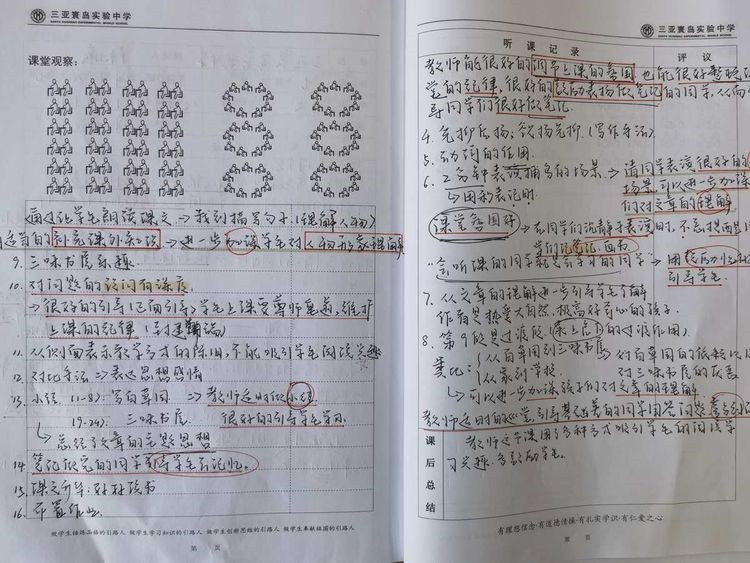 三亚寰岛实验中学
SANYA HUANDAO EXPERIMENTAL MIDDLE SCHOOL
课堂观察:
通过让学生朗读课文→找到描写句子(理解人物)
适当的补充课外知识→进一步加深学生对人物形象理解
9. 三味书屋乐趣
10. 对问题的设问有深度
→很好的引导(正面引导)学生上课要尊师重道,维护
上课的纪律
11. 从侧面表示教学方式的陈旧,不能吸引学生阅读兴趣
12. 对比手法⇒表达思想感情
13. 小结 (1-8): 写百草园⇒教师适时做小结
19-24): 三味书屋 很好的引导学生学习
↳总结了文章的主题思想
14. 笔记做完的同学引导学生去记忆。
15. 课文升华:好好读书
16. 布置作业
做学生锤炼品格的引路人 做学生学习知识的引路人 做学生创新思维的引路人 做学生奉献祖国的引路人
第 页
三亚寰岛实验中学
SANYA HUANDAO EXPERIMENTAL MIDDLE SCHOOL
听课记录
评议
教师能很好的调节上课的氛围,也能很好整顿
堂的纪律,很好的鼓励表扬做笔记的同学,从而
导同学们很好做笔记
4. 先抑后扬;欲扬先抑(写作手法)
5. 动词的作用
6. 2名学生表演捕鸟的场景→请同学表演很好的
场景,可以进一步加深
↳团和表记时 们对文章的理解
课堂氛围好→在同学们沉静于表演时,不忘提醒
学们记笔记、画书
"会听课的同学就是会学习的同学"→用
引导学生
7. 从文章的理解进一步引导学生了解
作者是热爱大自然,极高好奇心的孩子
8. 第9段是过渡段(承上启下的过渡作用)
类比: 从百草园到三味书屋 对百草园的依赖
从家到学校 对三味书屋的厌恶
↳可以进一步加深孩子们的对文章的理解
教师适时的
课后总结
教师这节课用了多种方式吸引学生的阅读学
习兴趣,多鼓励学生。
有理想信念·有道德情操·有扎实学识·有仁爱之心
第 页